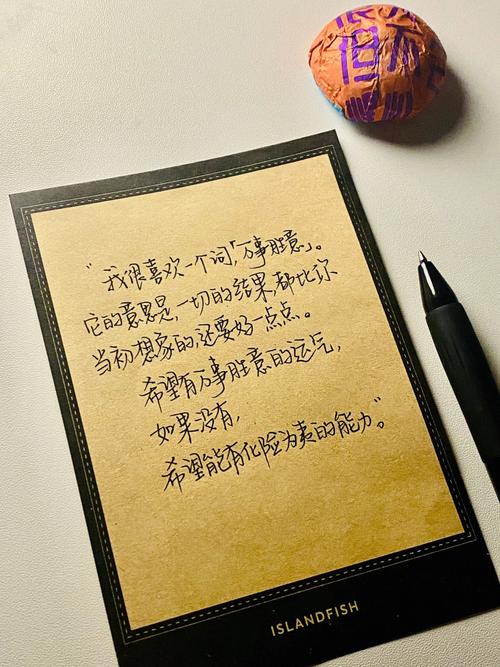 "我很喜欢一个词,「万事胜意」。
它的意思是,一切的结果,都比你
当初想象的,还要好一点点。
希望有万事胜意的运气,
如果没有,
希望能有化险为夷的能力"。
ISLANDFISH